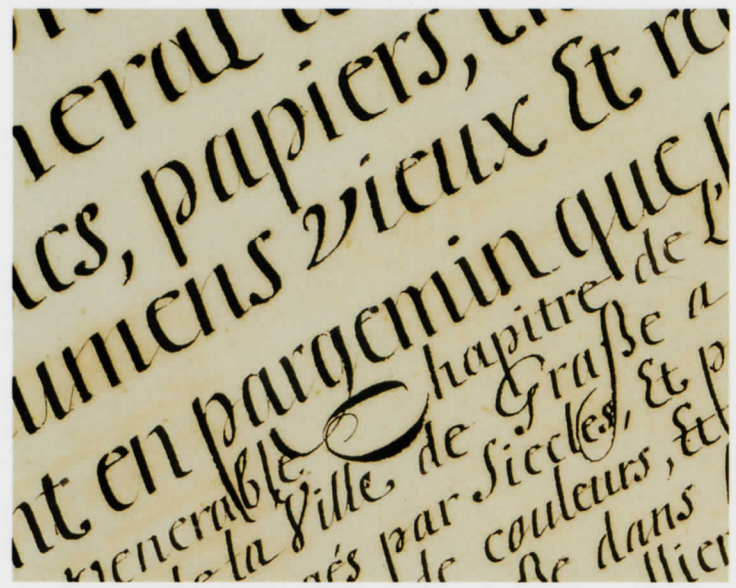 neral
acs, papiers,
umens vieux Et
nt en pargemin que
venerable Chapitre de L'
de la Ville de Graße a
gés par Siecles, Et p
de couleurs, Et
ße dans
llier